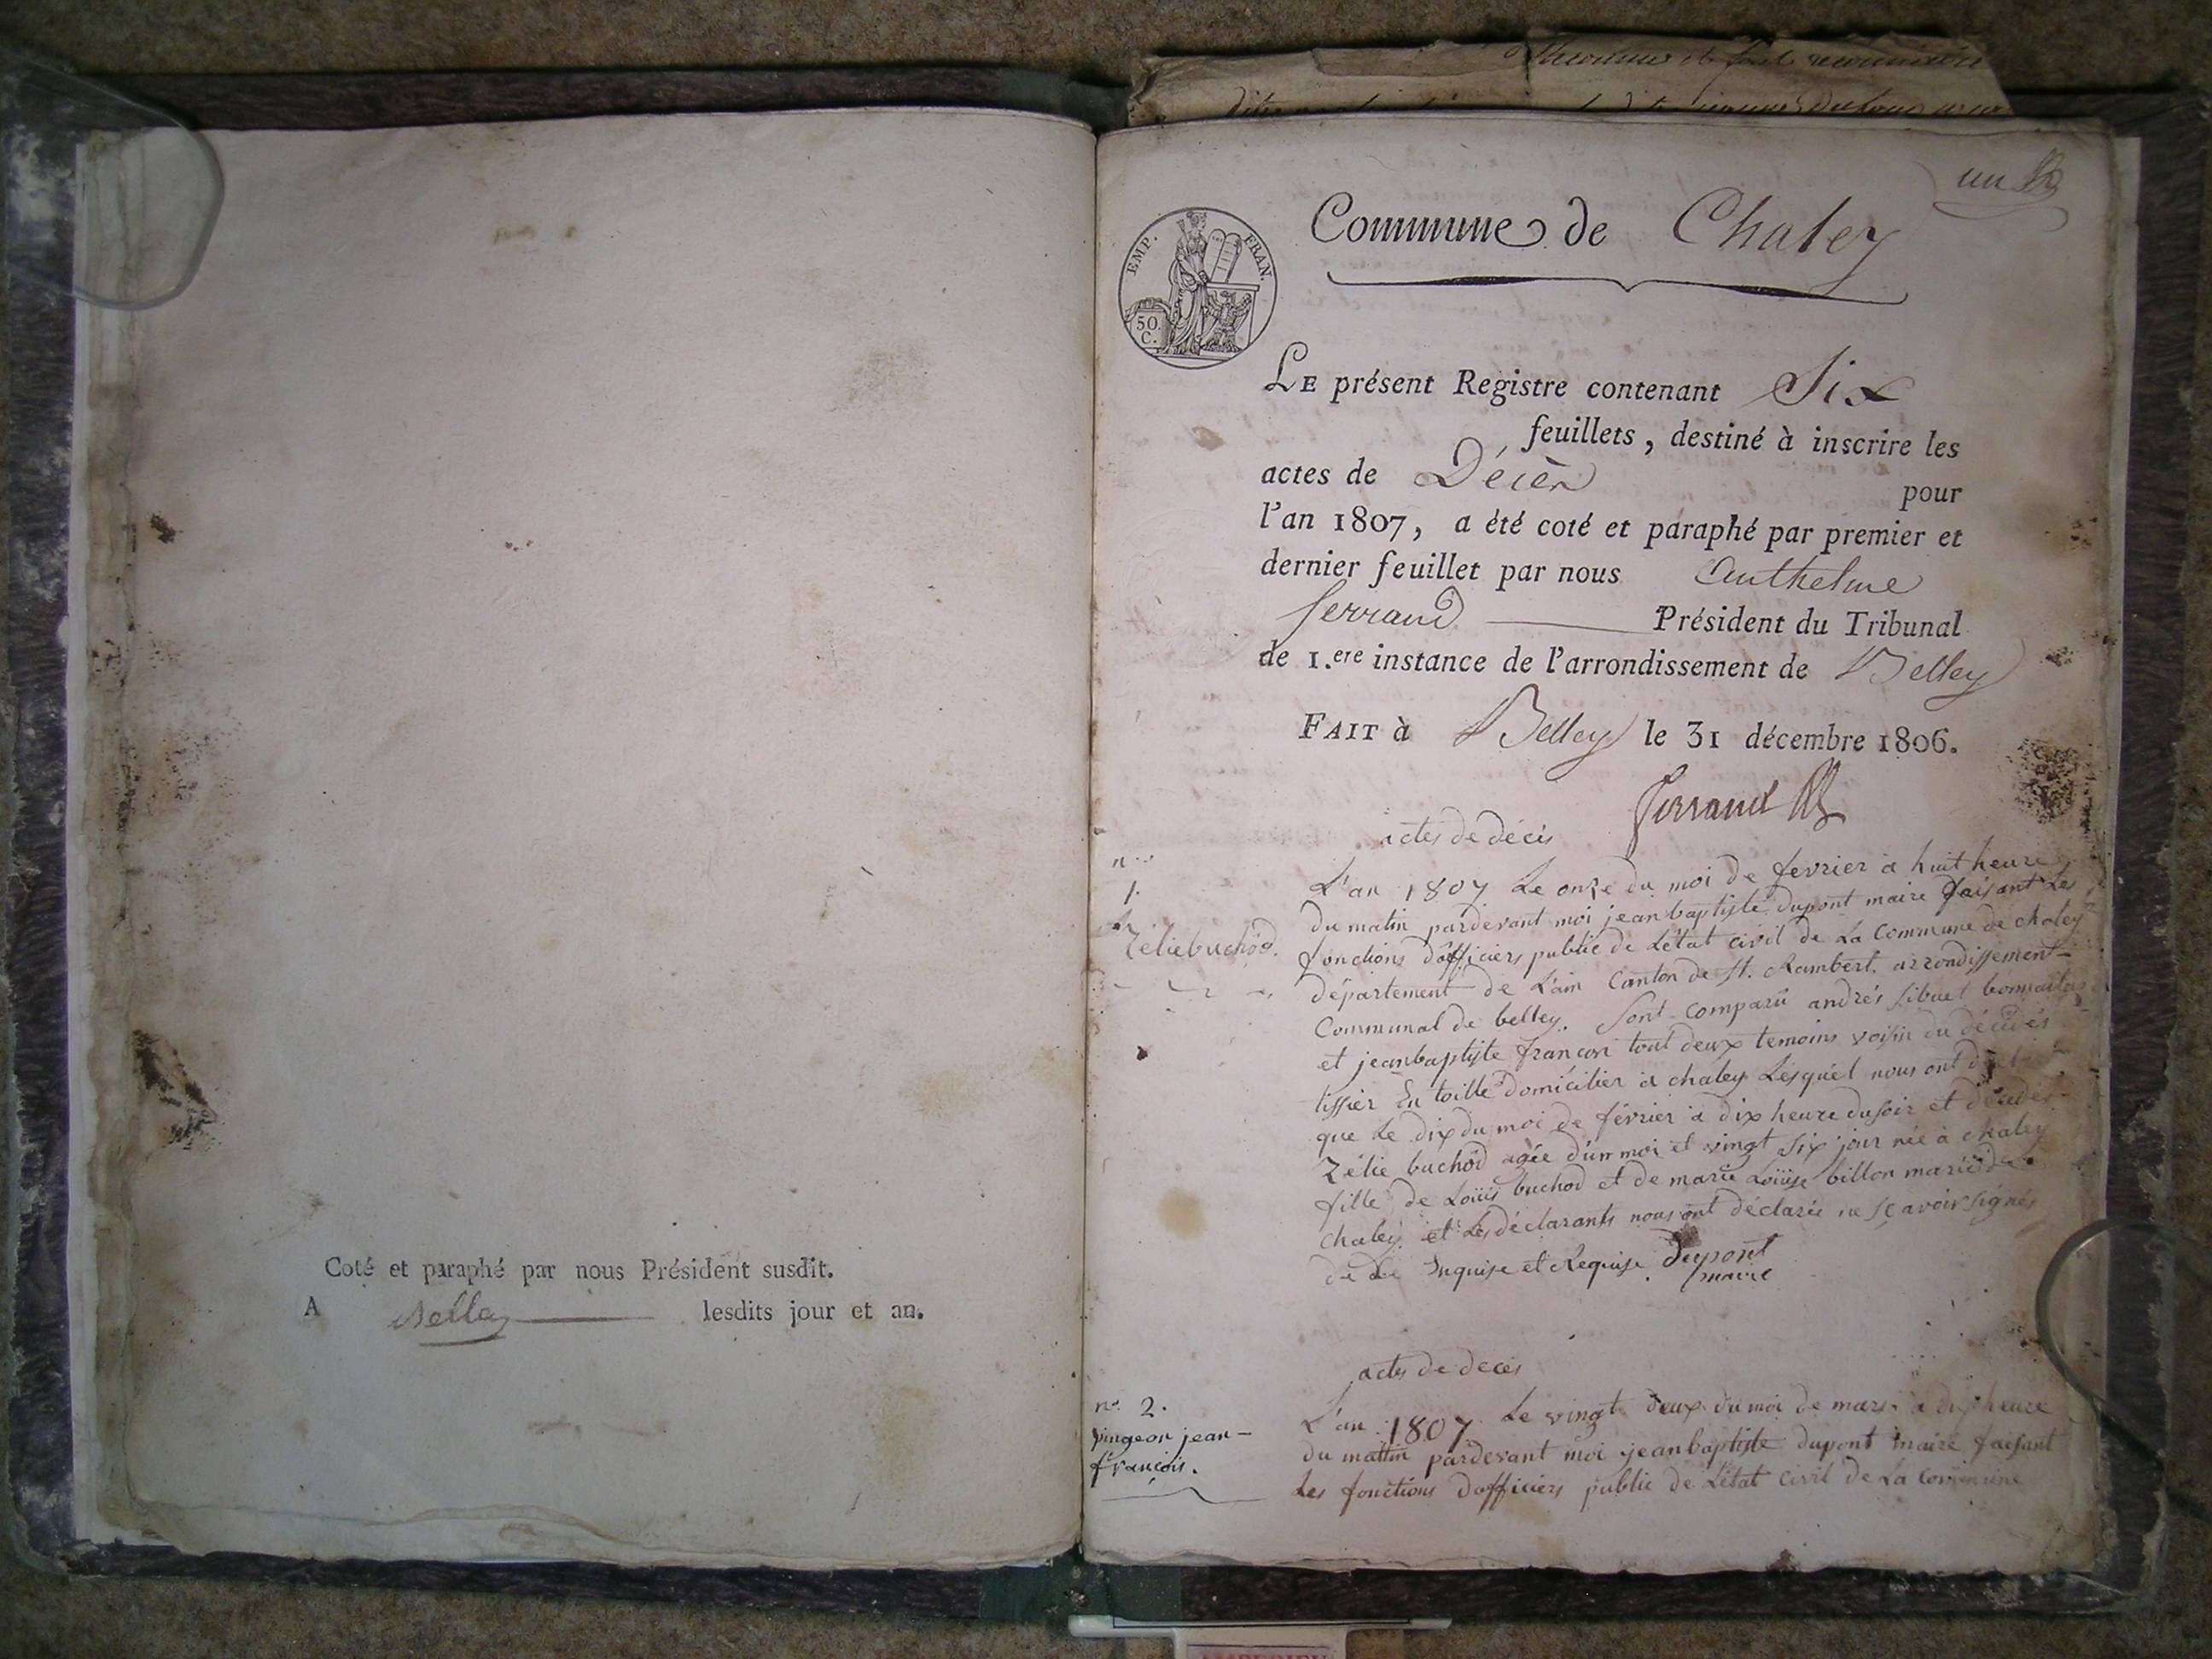 Coté et paraphé par nous Président susdit.
A Belley lesdits jour et an.
un
Commune de Chaley
EMP. FRAN.
50.
C.
LE présent Registre contenant Six
feuillets, destiné à inscrire les
actes de Décès pour
l'an 1807, a été coté et paraphé par premier et
dernier feuillet par nous Anthelme
ferrand Président du Tribunal
de 1.ere instance de l'arrondissement de Belley
FAIT à Belley le 31 décembre 1806.
ferrand
actes de décès
1.
Zélie buchod.
L'an 1807 Le onze du moi de fevrier a huit heure
du matin pardevant moi jean baptiste dupont maire faisant Les
fonctions d'officiers public de Létat civil de La Commune de chaley
département de L'ain Canton de St. Rambert. arrondissement
Communal de belley. Sont comparû andrés sibuet
et jean baptiste françon tout deux temoins voisin du décédés
tissier En toille domicilier a chaley Lesquél nous ont
que Le dix du moi de février a dix heure du soir et décédés
Zélie buchod agée d'un moi et vingt six jour née à chaley
fille de Louis buchod et de marie Louise billon mariés de
chaley et Les déclarants nous ont déclarée ne sçavoir signés
de ce Enquise et Requise. dupont
maire
actes de deces
n° 2.
pingeon jean-
françois.
L'an 1807 Le vingt deux du moi de mars a dix heure
du mattin pardevant moi jean baptiste dupont maire faisant
Les fonctions d'officiers public de Létat civil de La Commune